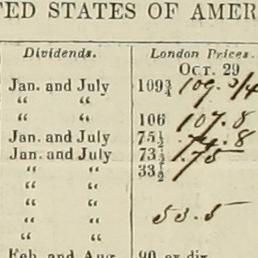 TED STATES OF AMER
Dividends. London Prices.
Oct. 29
Jan. and July 109¾ 109.3/4
“ “
“ “ 106 107.8
Jan. and July 75½ 74.8
Jan. and July 73½ .75
“ “ 33½
“ “
“ “ 53.5
“ “
Feb. and Aug. 90 ex div.